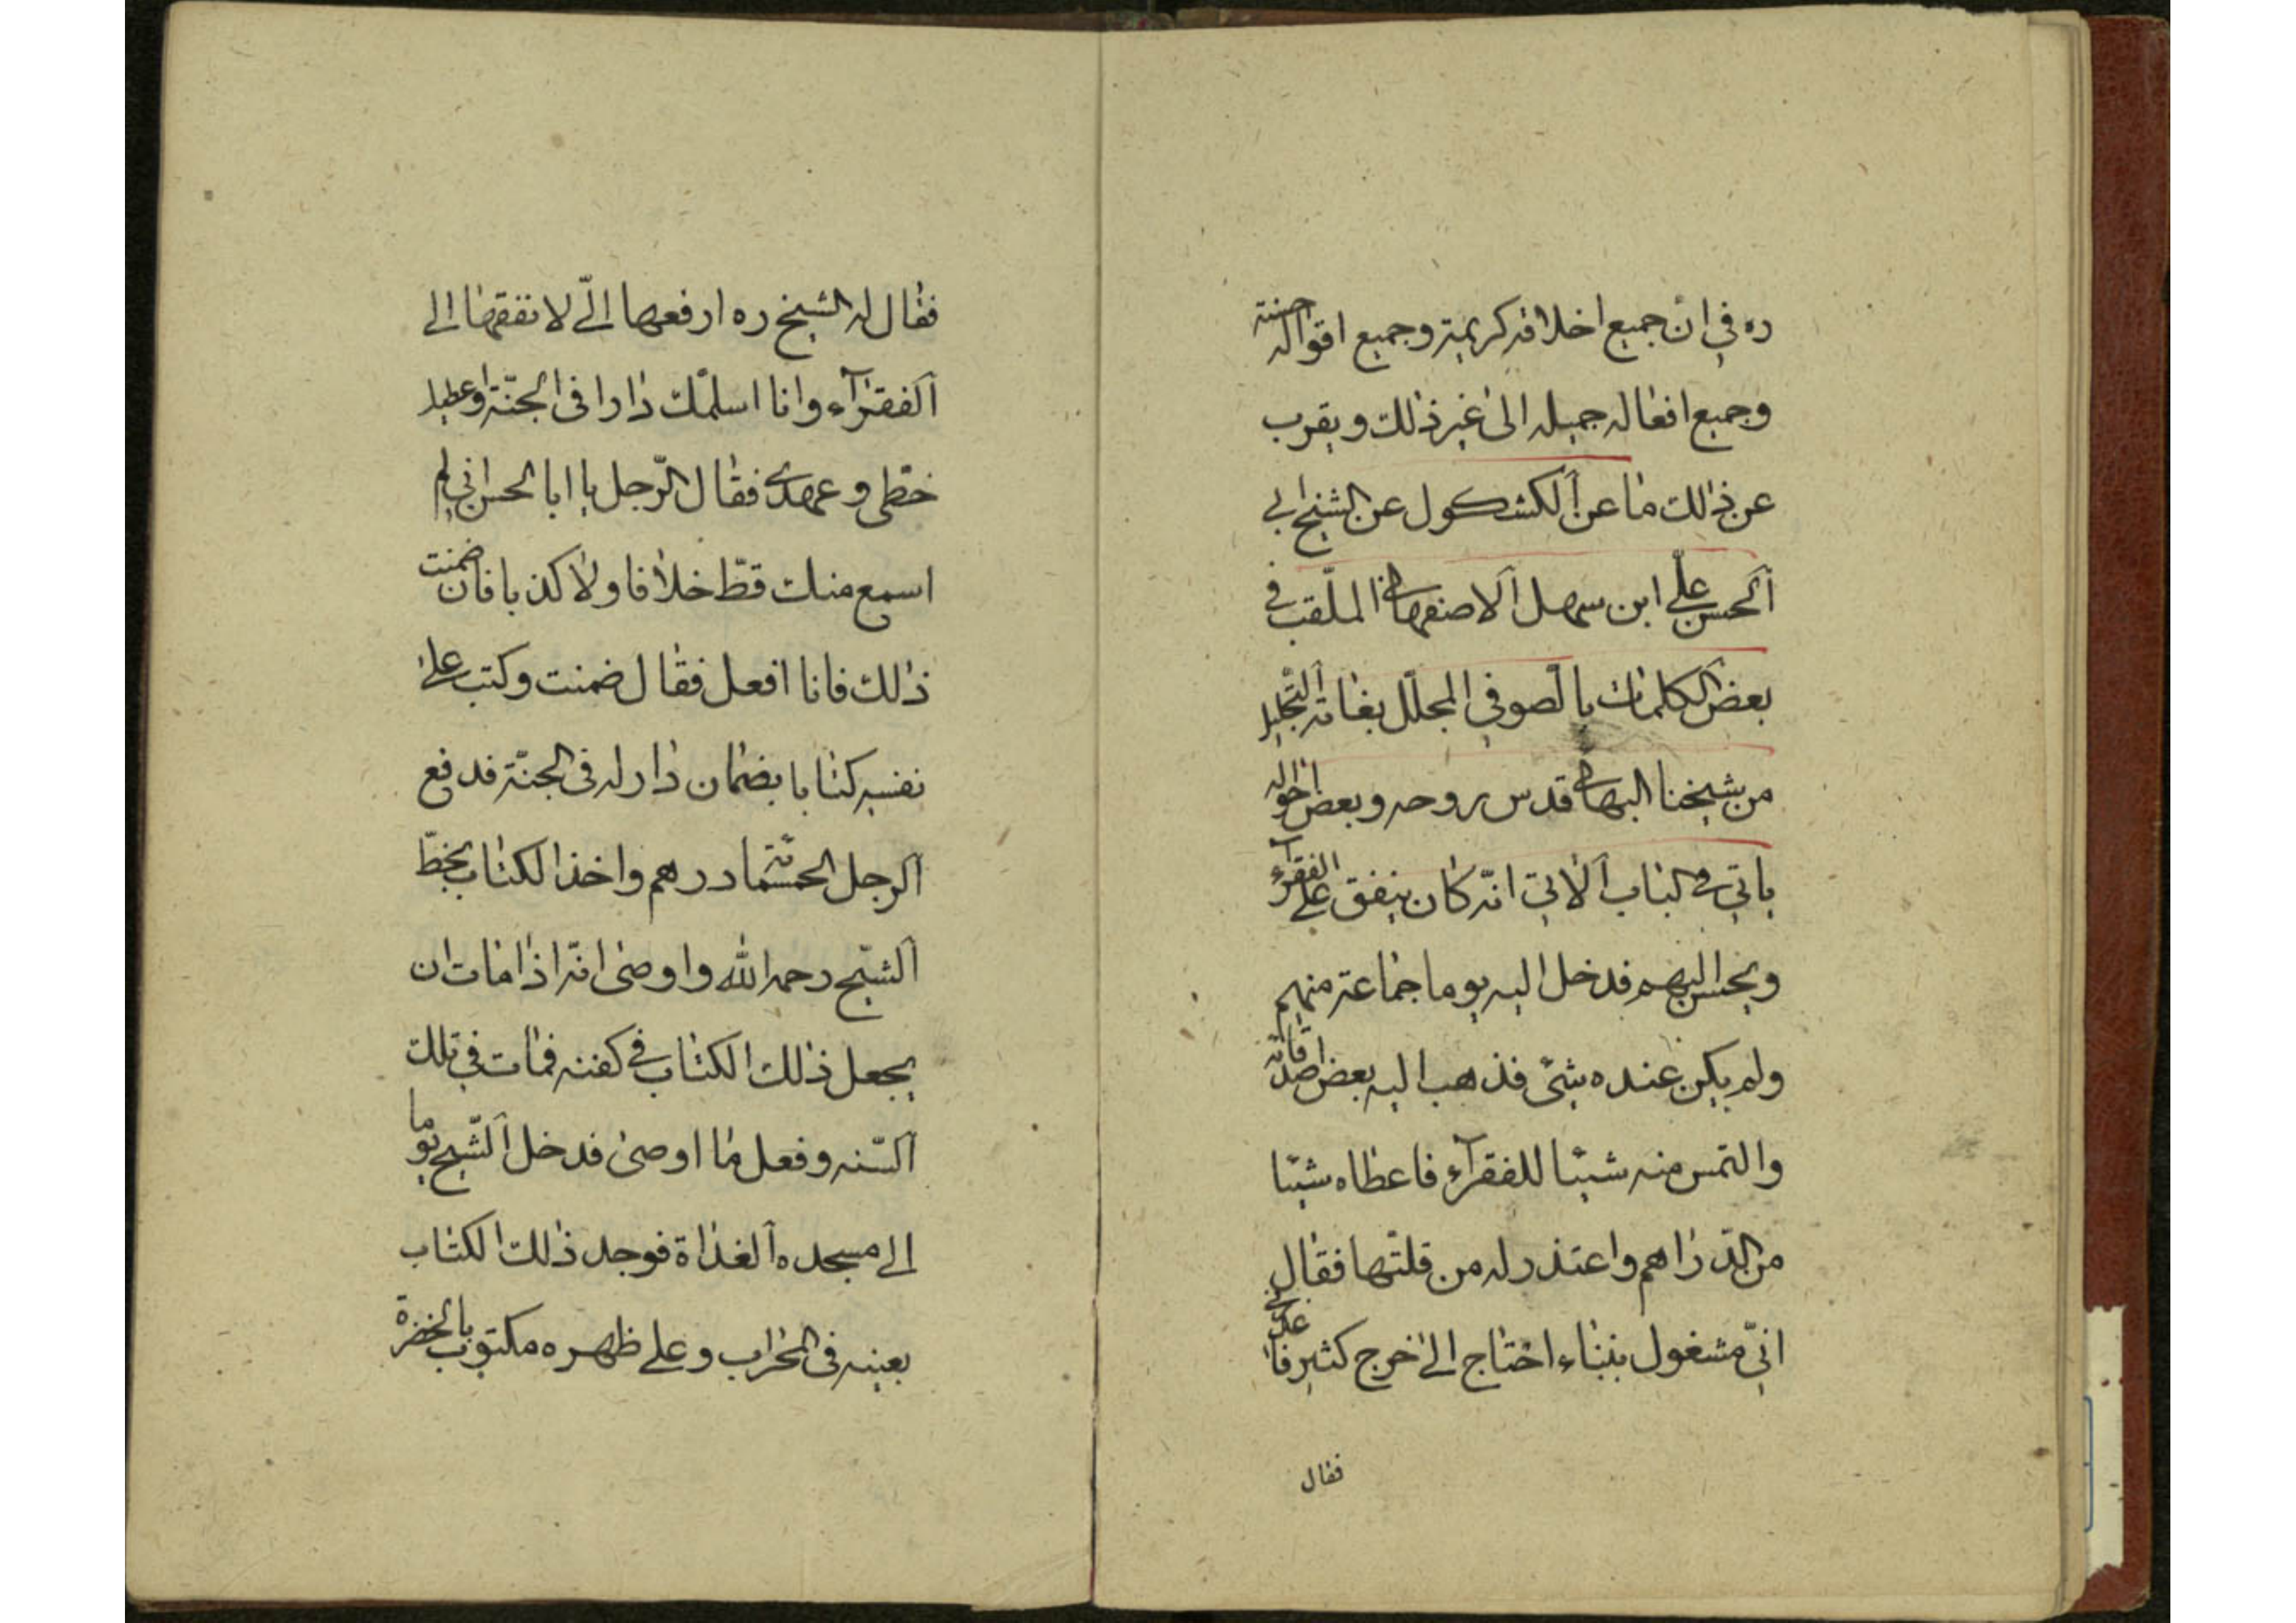 ره في ان جميع اخلاقه كريمة وجميع اقواله حسنة
وجميع افعاله جميله الى غير ذلك ويقرب
عن ذلك ما عن الكشكول عن الشيخ ابي
الحسن علي ابن سهل الاصفهاني الملقب في
بعض الكلمات بالصوفي المجلل بغاية التجليل
من شيخنا البهائي قدس روحه وبعض احواله
ياتي في الباب الآتي انه كان ينفق على الفقرآء
ويحسن اليهم فدخل اليه يوما جماعة منهم
ولم يكن عنده شئ فذهب اليه بعض اصدقائه
والتمس منه شيئا للفقرآء فاعطاه شيئا
من الدراهم واعتذر له من قلتها فقال
اني مشغول ببناء احتاج الى خرج كثير فاعذرني
فقال
فقال له الشيخ ره ارفعها الي لانفقها الى
الفقرآء وانا اسلمك دارا في الجنة واعطيك
خطي وعهدي فقال الرجل يا ابا الحسن اني لم
اسمع منك قط خلافا ولا كذبا فان ضمنت
ذلك فانا افعل فقال ضمنت وكتب على
نفسه كتابا بضمان دار له في الجنة فدفع
الرجل الخمسمائة درهم واخذ الكتاب بخط
الشيخ رحمه الله واوصى انه اذا مات ان
يجعل ذلك الكتاب في كفنه فمات في تلك
السنه وفعل ما اوصى فدخل الشيخ يوما
الى مسجده الغداة فوجد ذلك الكتاب
بعينه في المحراب وعلى ظهره مكتوب بالخضرة